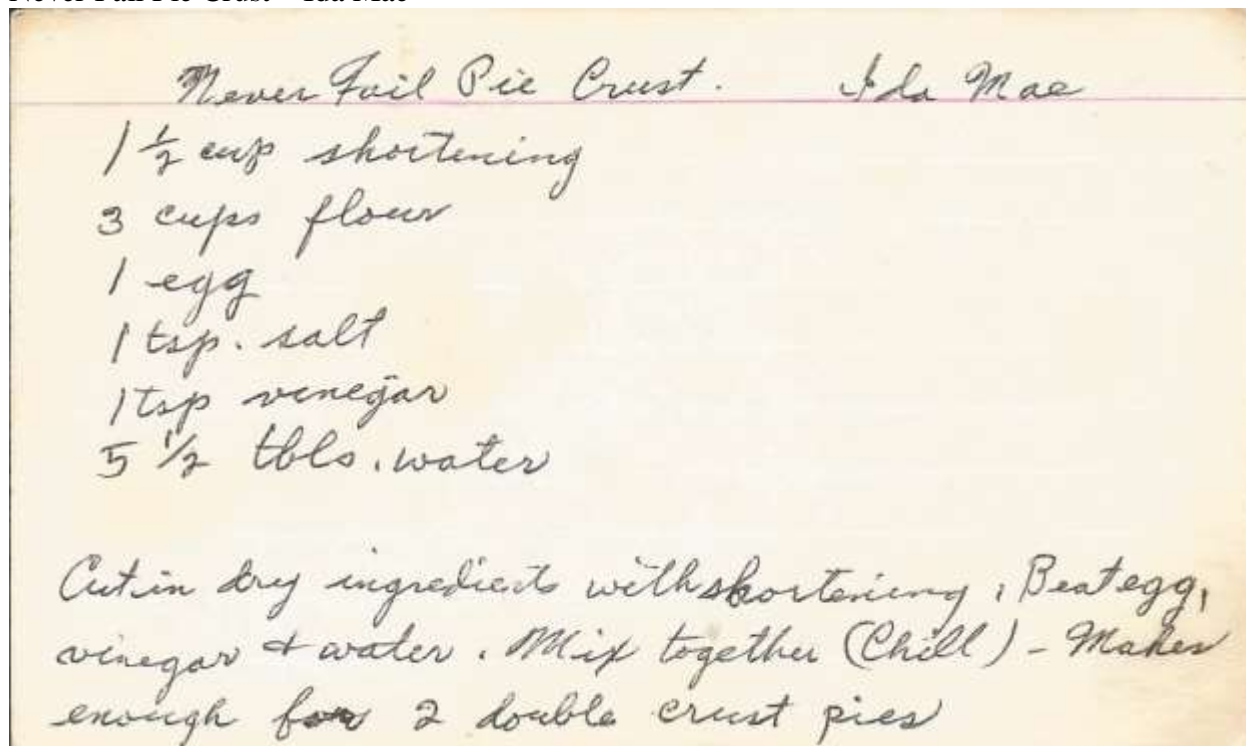 Never Fail Pie Crust. Ida Mae
1 1/2 cup shortening
3 cups flour
1 egg
1 tsp. salt
1 tsp vinegar
5 1/2 tbls. water
Cut in dry ingredients with shortening, Beat egg,
vinegar + water. Mix together (Chill) - Makes
enough for 2 double crust pies